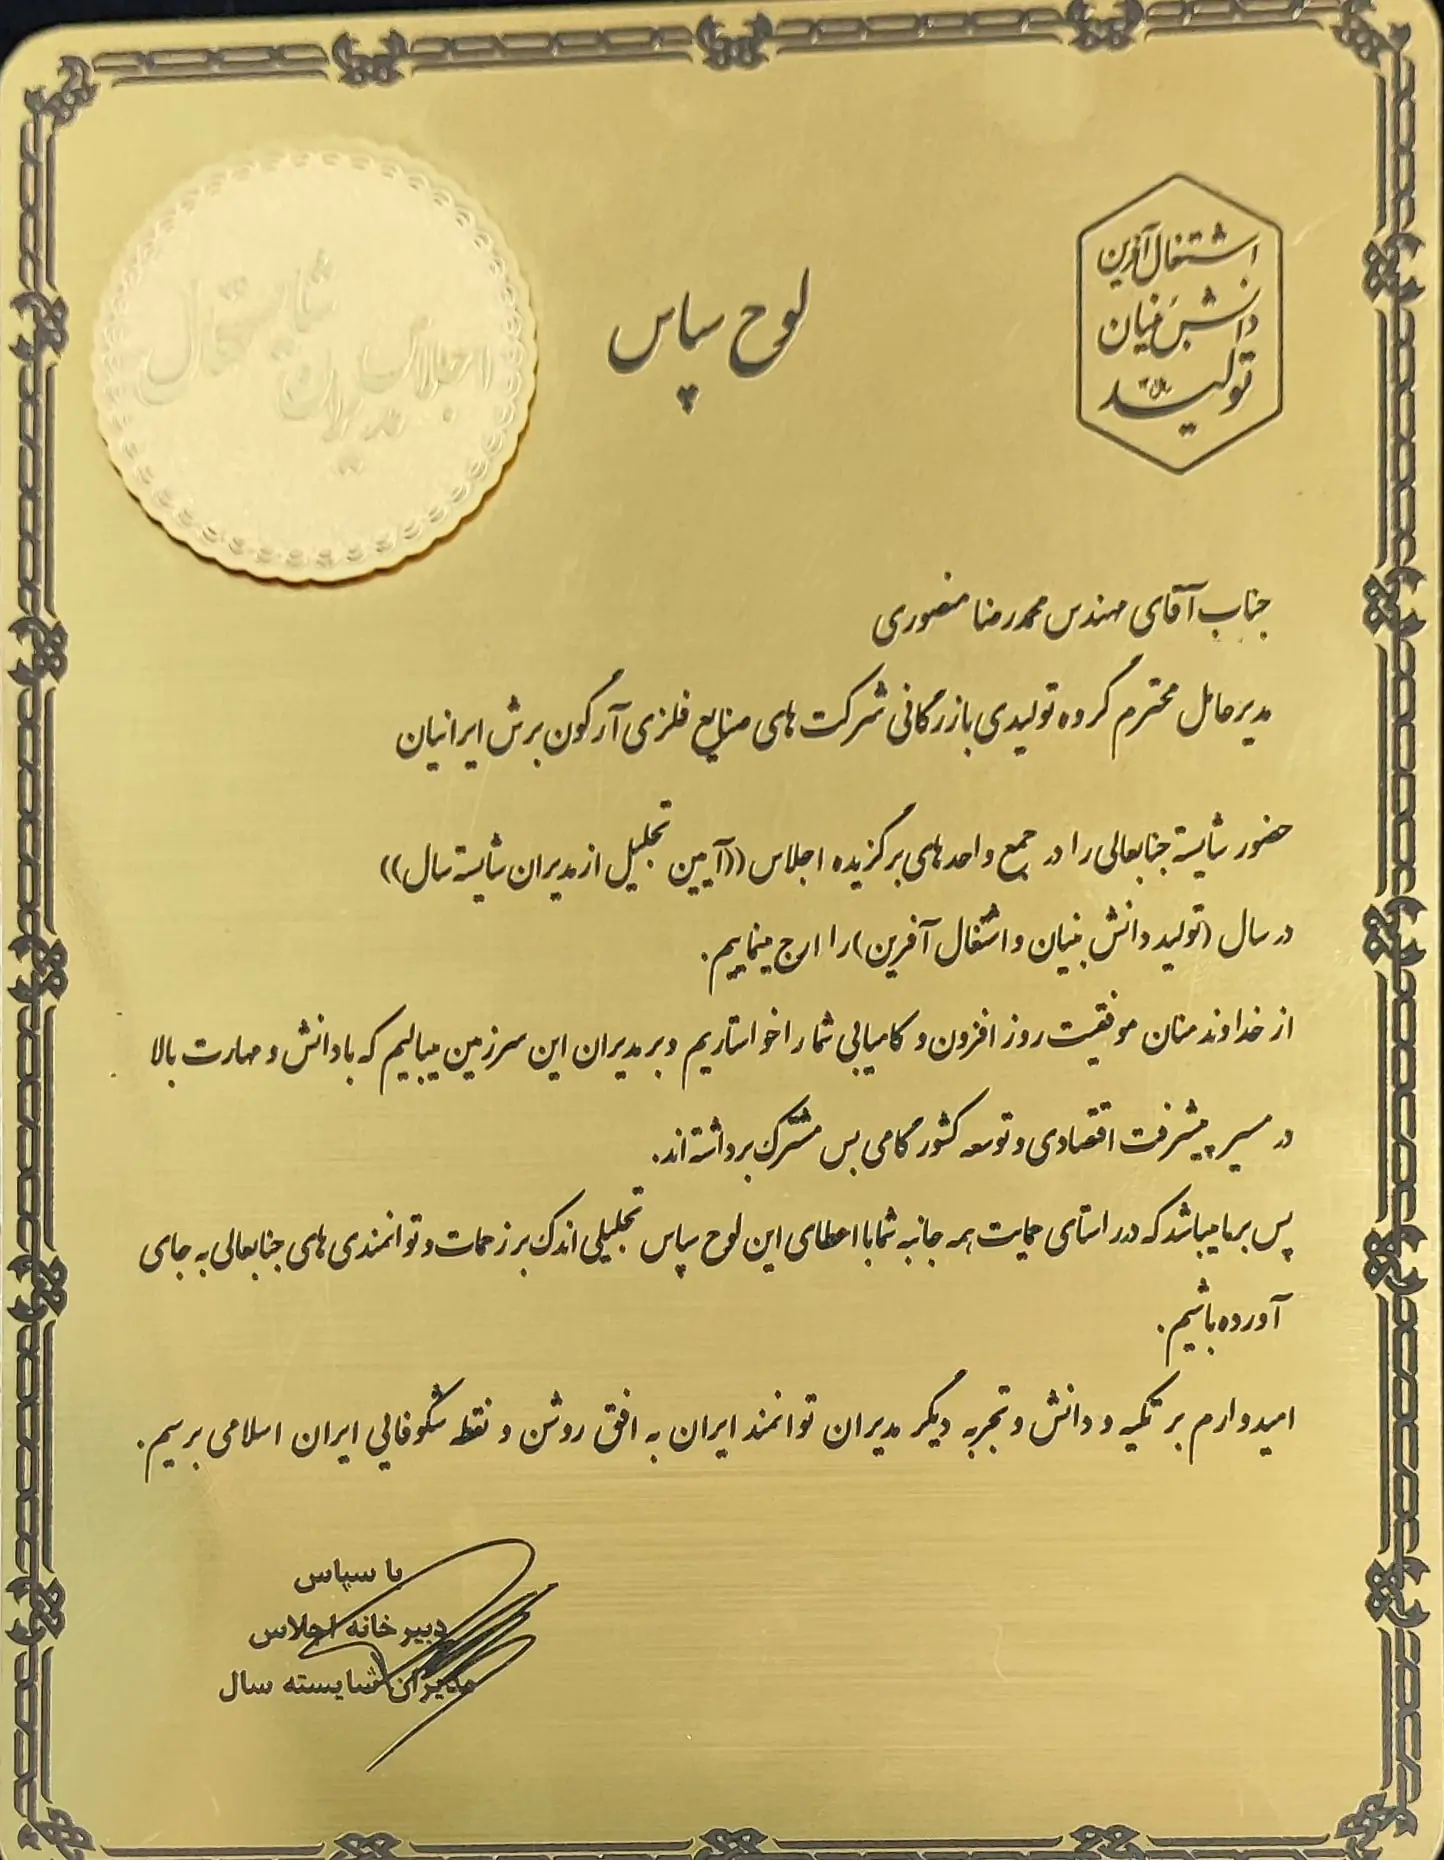 اجلاس
مدیران
شایسته سال
لوح سپاس
تولید
دانش‌بنیان
اشتغال آفرین
جناب آقای مهندس محمدرضا منصوری
مدیرعامل محترم گروه تولیدی بازرگانی شرکت های صنایع فلزی آرگون برش ایرانیان
حضور شایسته جنابعالی را در جمع واحدهای برگزیده اجلاس ((آیین تجلیل از مدیران شایسته سال))
در سال (تولید دانش بنیان و اشتغال آفرین) را ارج مینماییم.
از خداوند منان موفقیت روز افزون و کامیابی شما را خواستاریم و بر مدیران این سرزمین میبالیم که با دانش و مهارت بالا
در مسیر پیشرفت اقتصادی و توسعه کشور گامی بس مشترک برداشته اند.
پس برما میباشد که در راستای حمایت همه جانبه شما با اعطای این لوح سپاس تجلیلی اندک بر زحمات و توانمندی های جنابعالی به جای
آورده باشیم.
امیدوارم بر تکیه و دانش و تجربه دیگر مدیران توانمند ایران به افق روشن و نقطه شکوفایی ایران اسلامی برسیم.
با سپاس
دبیرخانه اجلاس
مدیران شایسته سال